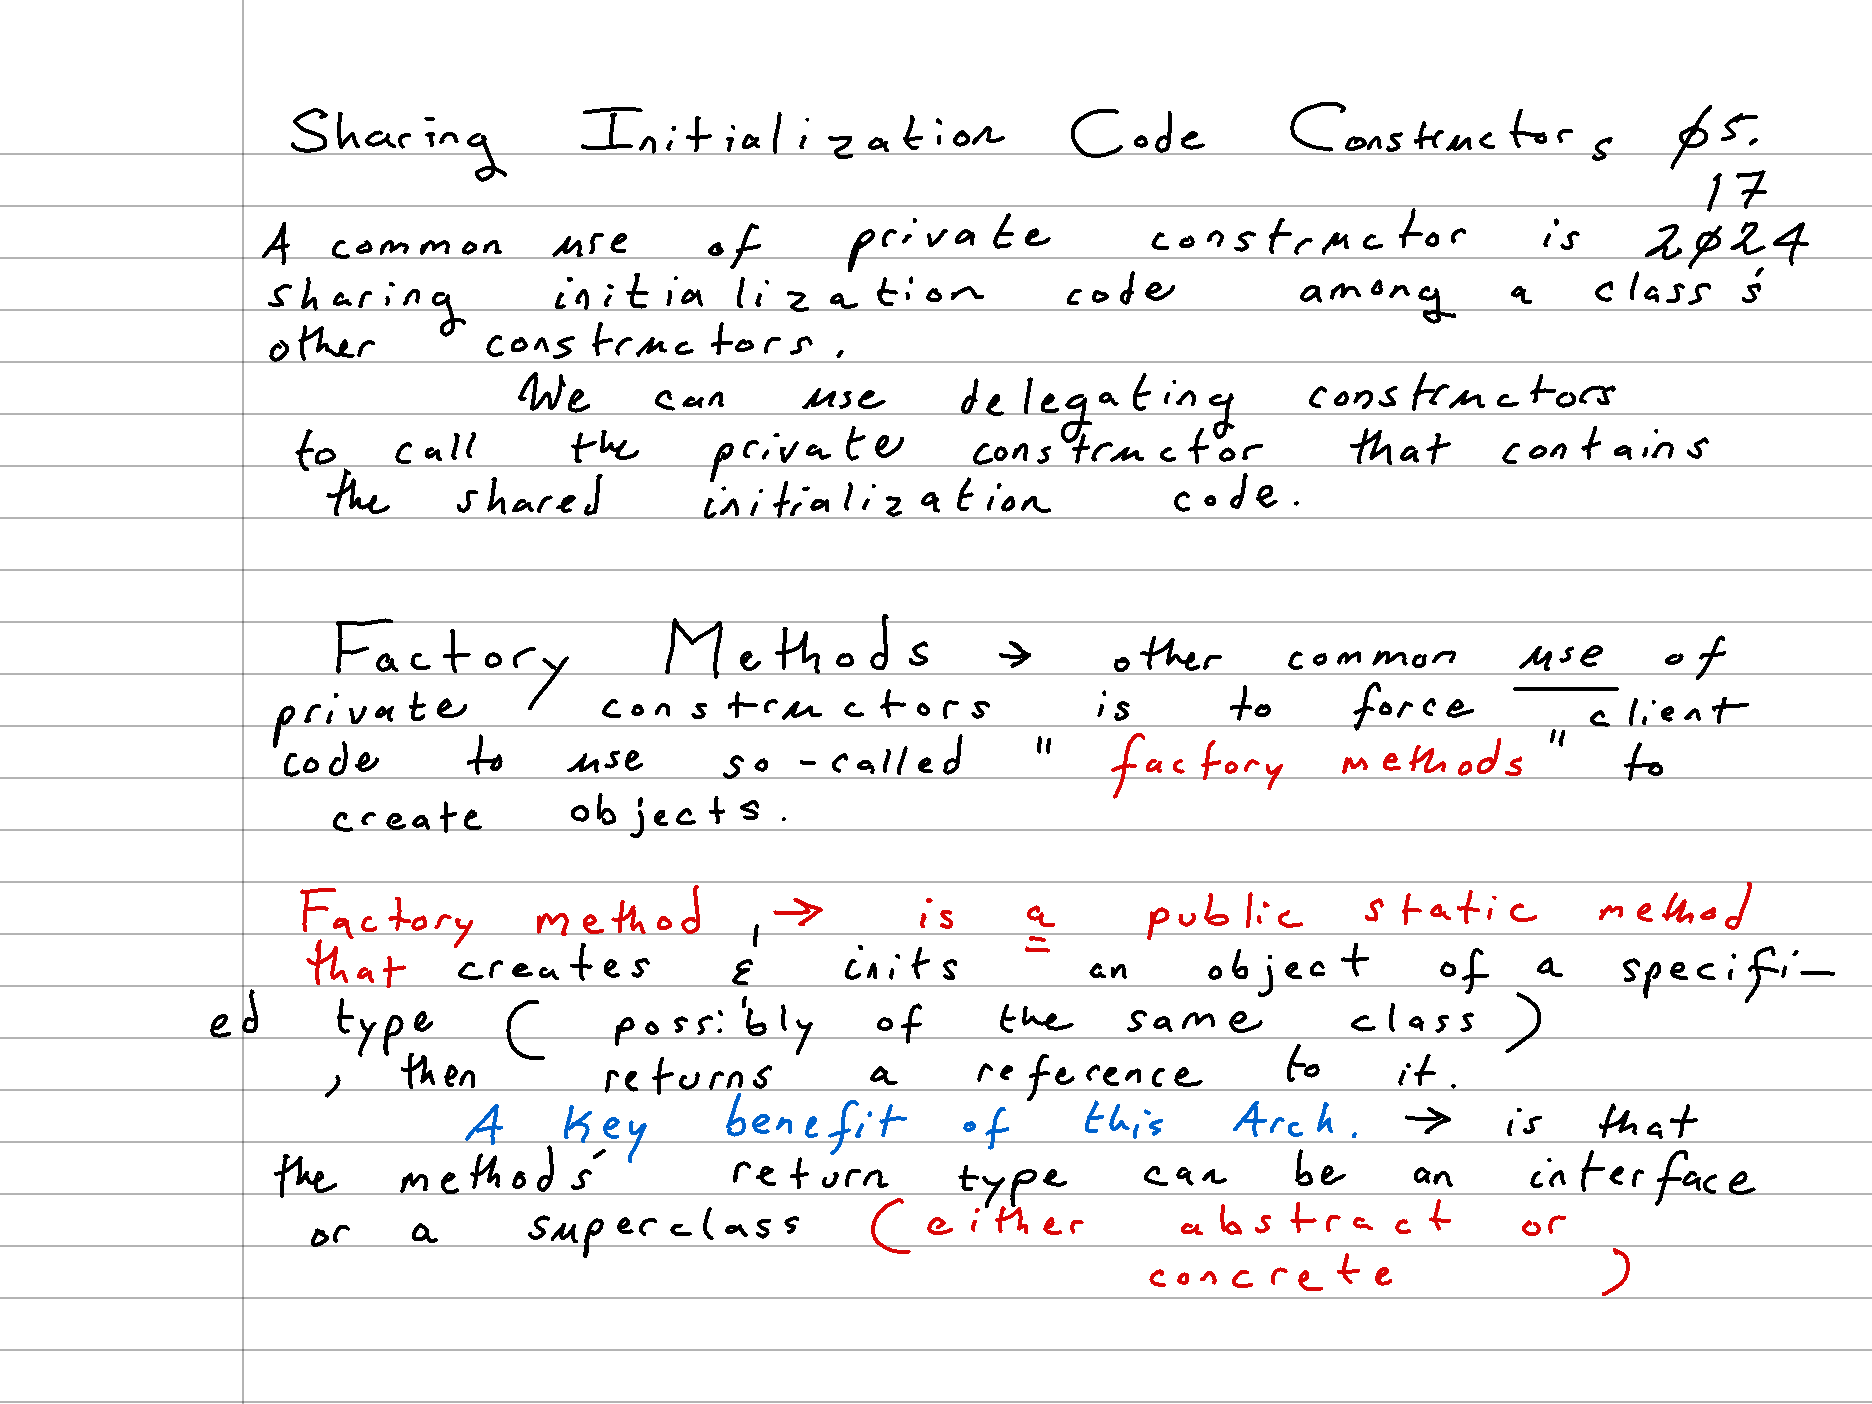 Sharing Initialization Code Constructors ø5.
17
A common use of private constructor is 2ø24
sharing initialization code among a class's
other constructors.
We can use delegating constructors
to call the private constructor that contains
the shared initialization code.
Factory Methods → other common use of
private constructors is to force client
code to use so-called "factory methods" to
create objects.
Factory method, → is a public static method
that creates & inits an object of a specifi-
ed type (possibly of the same class)
, then returns a reference to it.
A Key benefit of this Arch. → is that
the methods' return type can be an interface
or a superclass (either abstract or
concrete )